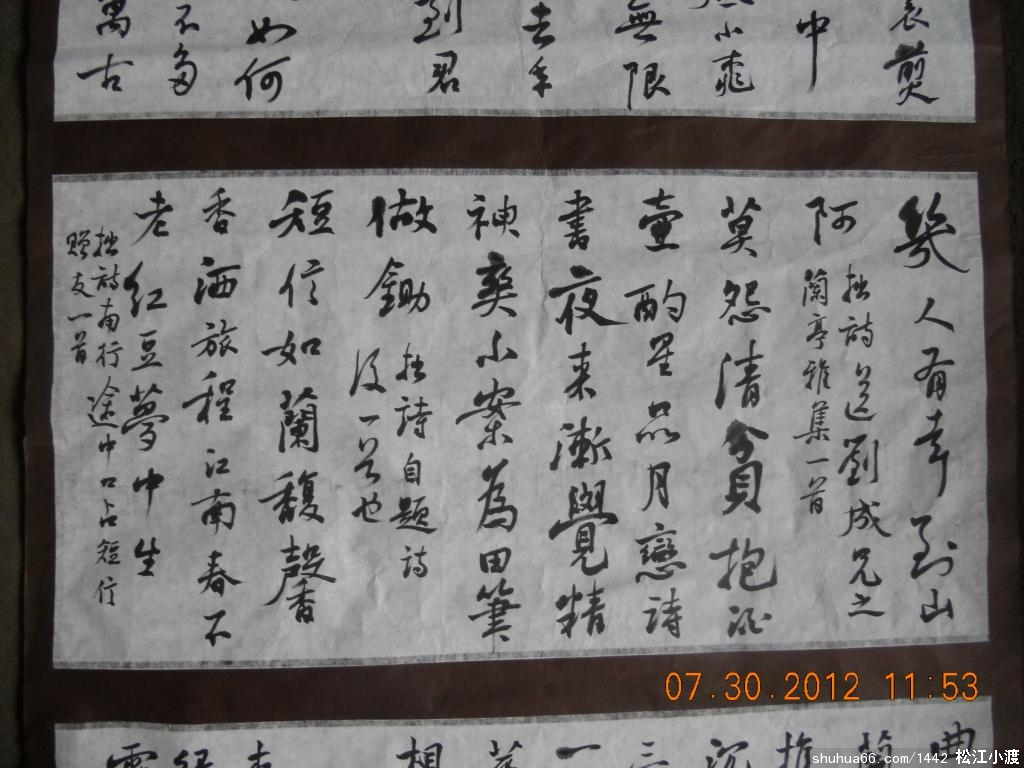 裁剪
中
小乖
無限
去年
到君
如何
不多
萬古
幾人有幸到山
阿
拙詩送劉成兄之
蘭亭雅集一首
莫怨清貧抱
壺酌星品月戀詩
書夜來漸覺精
神爽小案為田筆
做鋤
拙詩自題詩
後一首也
短信如蘭馥馨
香洒旅程江南春不
老紅豆夢中生
拙詩南行途中口占短信
贈友一首
07.30.2012 11:53
三
一
想
shuhua66.com/1442 松江小渡